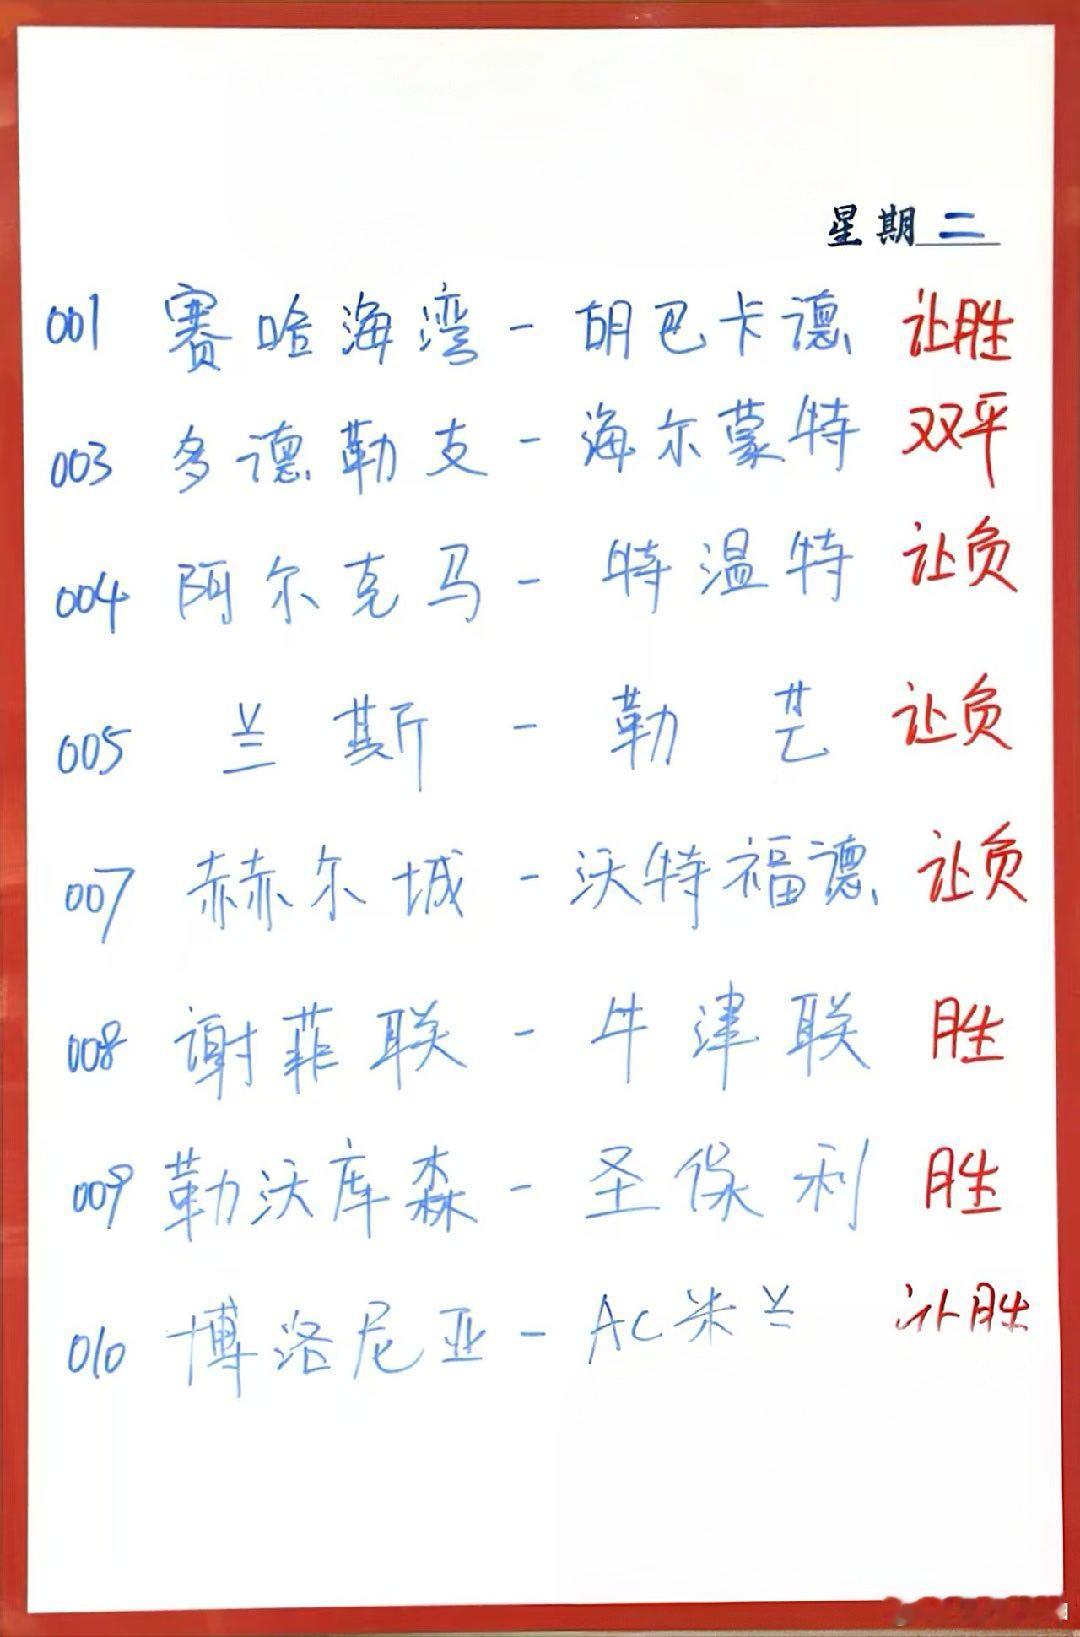 星期二
001 赛哈海湾 - 胡巴卡德 让胜
003 多德勒支 - 海尔蒙特 双平
004 阿尔克马 - 特温特 让负
005 兰斯 - 勒芒 让负
007 赫尔城 - 沃特福德 让负
008 谢菲联 - 牛津联 胜
009 勒沃库森 - 圣保利 胜
010 博洛尼亚 - AC米兰 让胜